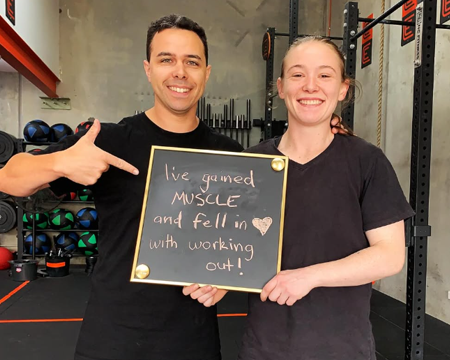 I've gained
MUSCLE
and fell in ♥
with working
out!